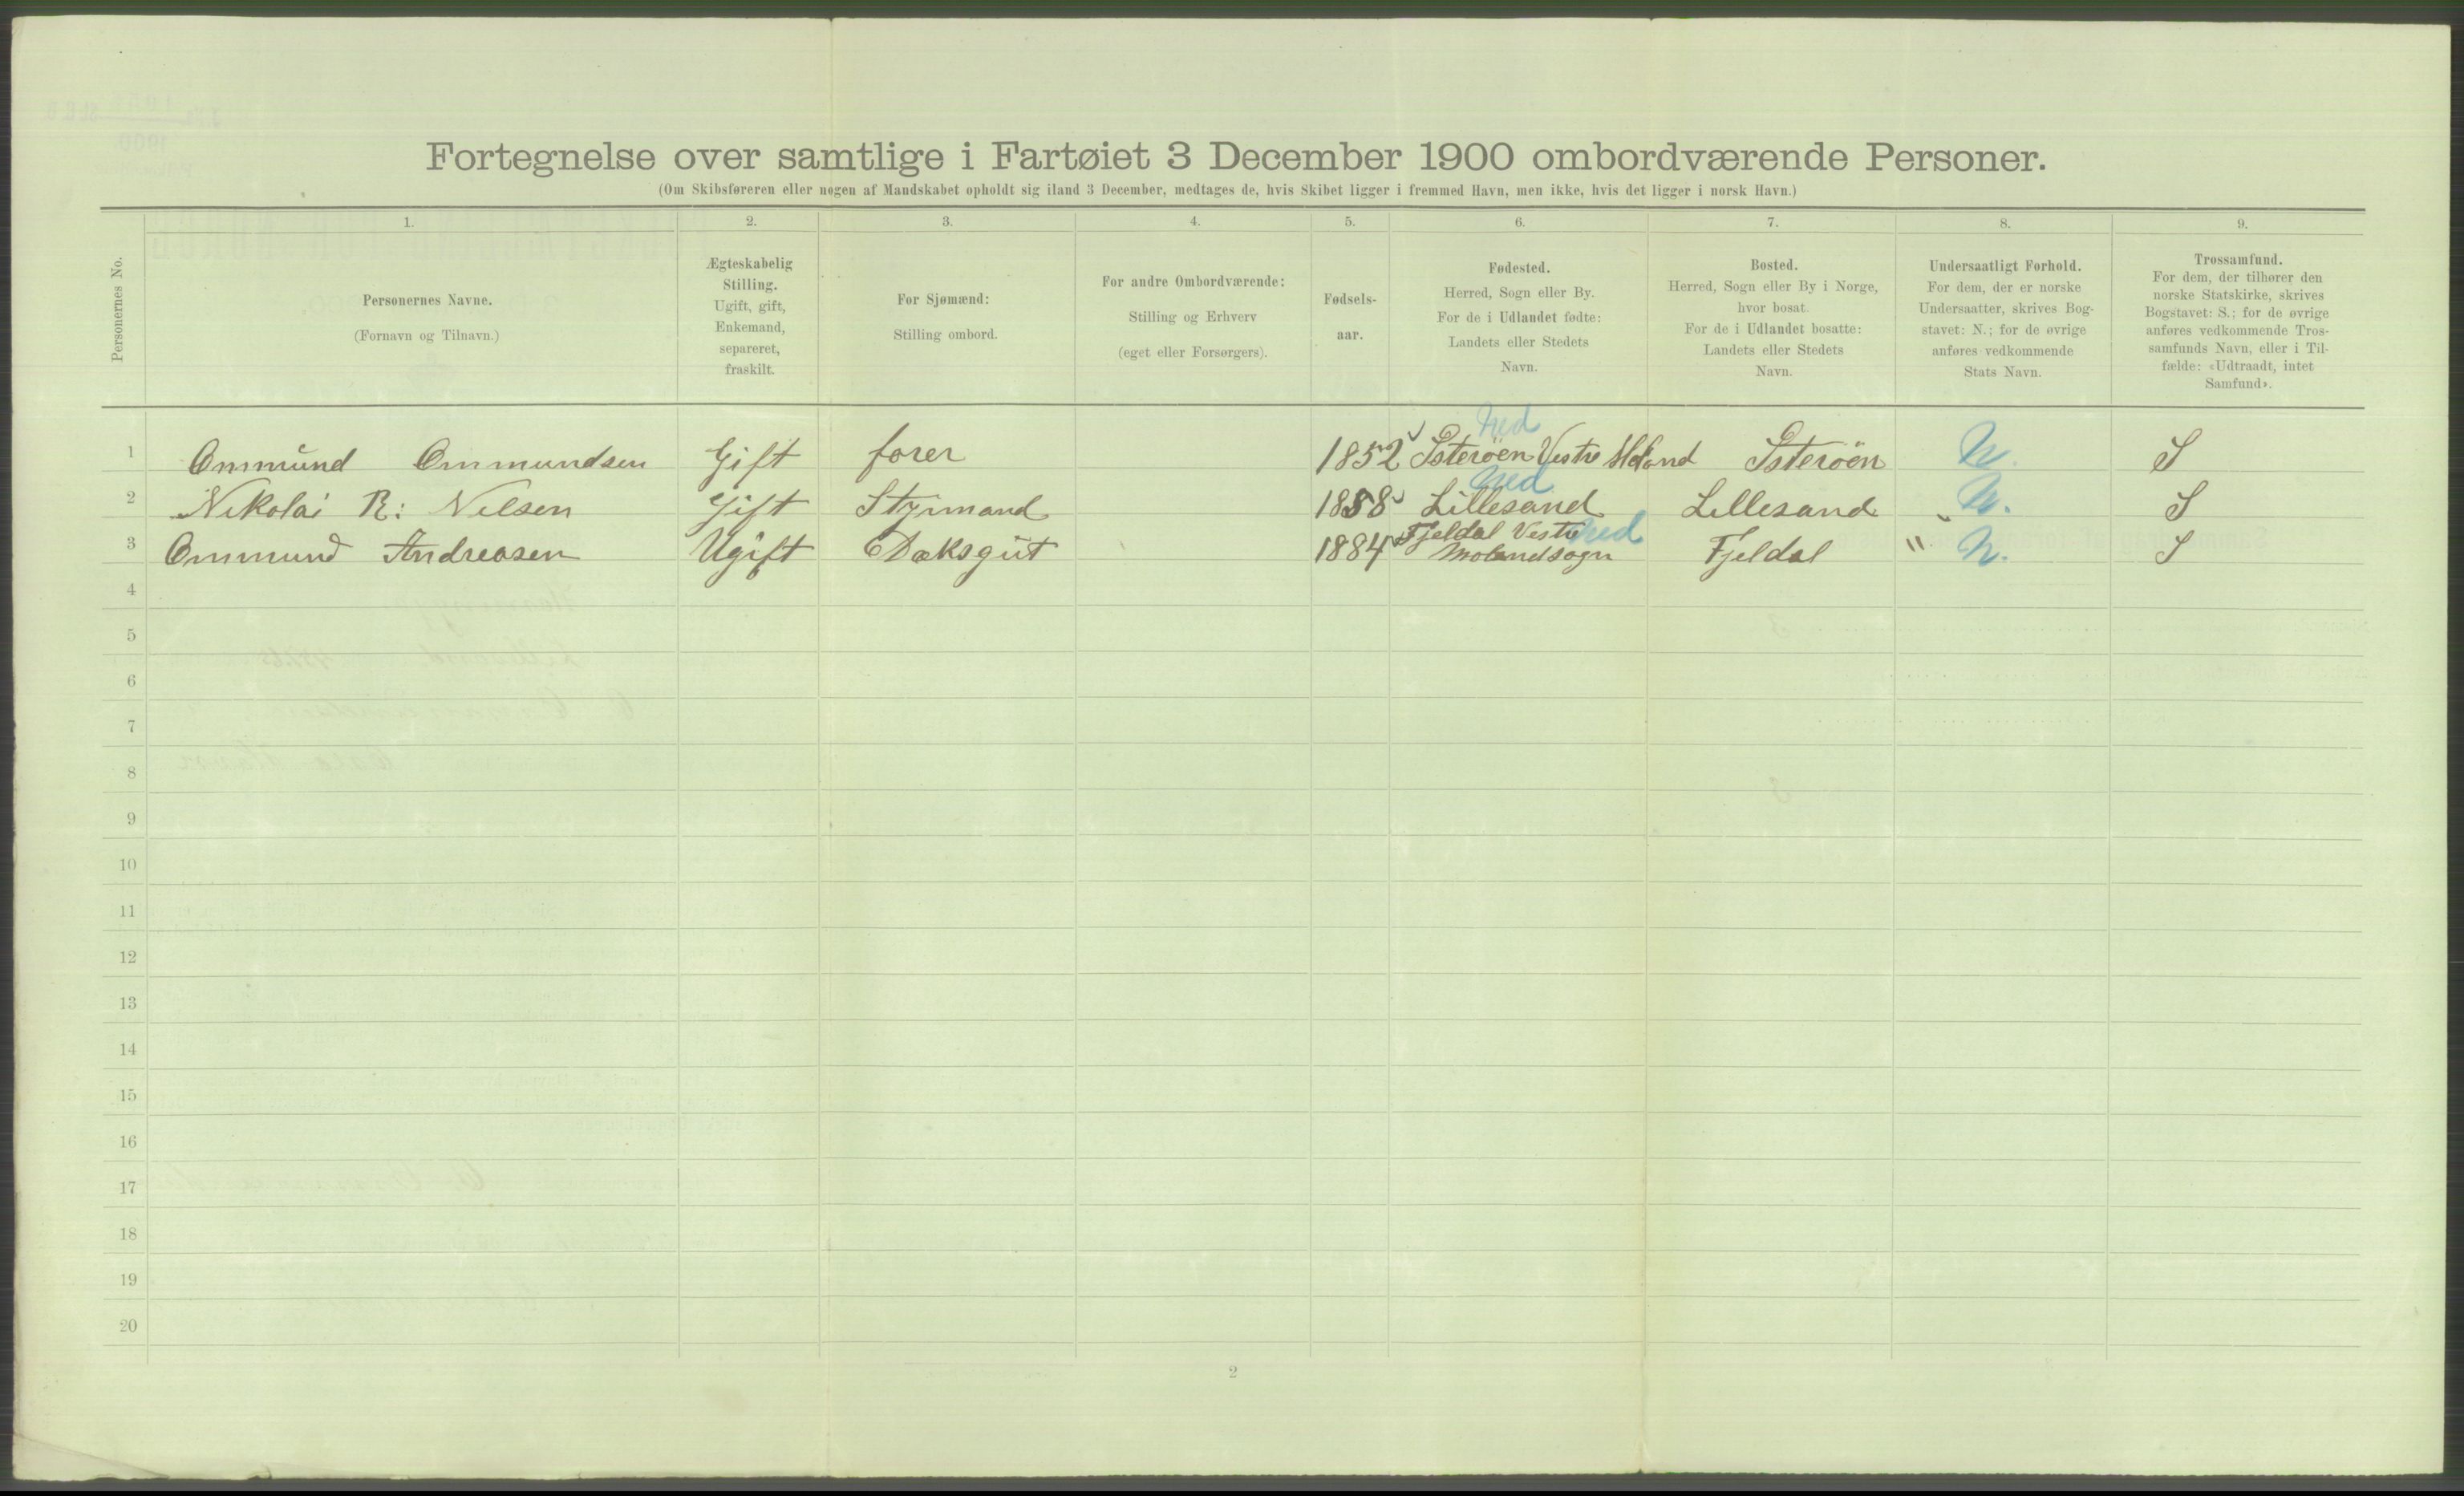 Fortegnelse over samtlige i Fartøiet 3 December 1900 ombordværende Personer.
(Om Skibsføreren eller nogen af Mandskabet opholdt sig iland 3 December, medtages de, hvis Skibet ligger i fremmed Havn, men ikke, hvis det ligger i norsk Havn.)
Personernes No.
1. 2. 3. 4. 5. 6. 7. 8. 9.
Personernes Navne.
(Fornavn og Tilnavn.)
Ægteskabelig
Stilling.
Ugift, gift,
Enkemand,
separeret,
fraskilt.
For Sjømænd:
Stilling ombord.
For andre Ombordværende:
Stilling og Erhverv
(eget eller Forsørgers).
Fødsels-
aar.
Fødested.
Herred, Sogn eller By.
For de i Udlandet fødte:
Landets eller Stedets
Navn.
Bosted.
Herred, Sogn eller By i Norge,
hvor bosat.
For de i Udlandet bosatte:
Landets eller Stedets
Navn.
Undersaatligt Forhold.
For dem, der er norske
Undersaatter, skrives Bog-
stavet: N.; for de øvrige
anføres vedkommende
Stats Navn.
Trossamfund.
For dem, der tilhører den
norske Statskirke, skrives
Bogstavet: S.; for de øvrige
anføres vedkommende Tros-
samfunds Navn, eller i Til-
fælde: «Udtraadt, intet
Samfund».
Ned
1 Ommund Ommundsen Gift fører 1852 Isteröen Vestre Moland Isteröen N. S
Ned
2 Nikolai R: Nilsen Gift Styrmand 1858 Lillesand Lillesand " N. S
Fjeldal Vestre Ned
3 Ommund Andreasen Ugift Dæksgut 1884 Molandsogn Fjeldal " N. S
4
5
6
7
8
9
10
11
12
13
14
15
16
17
18
19
20
2